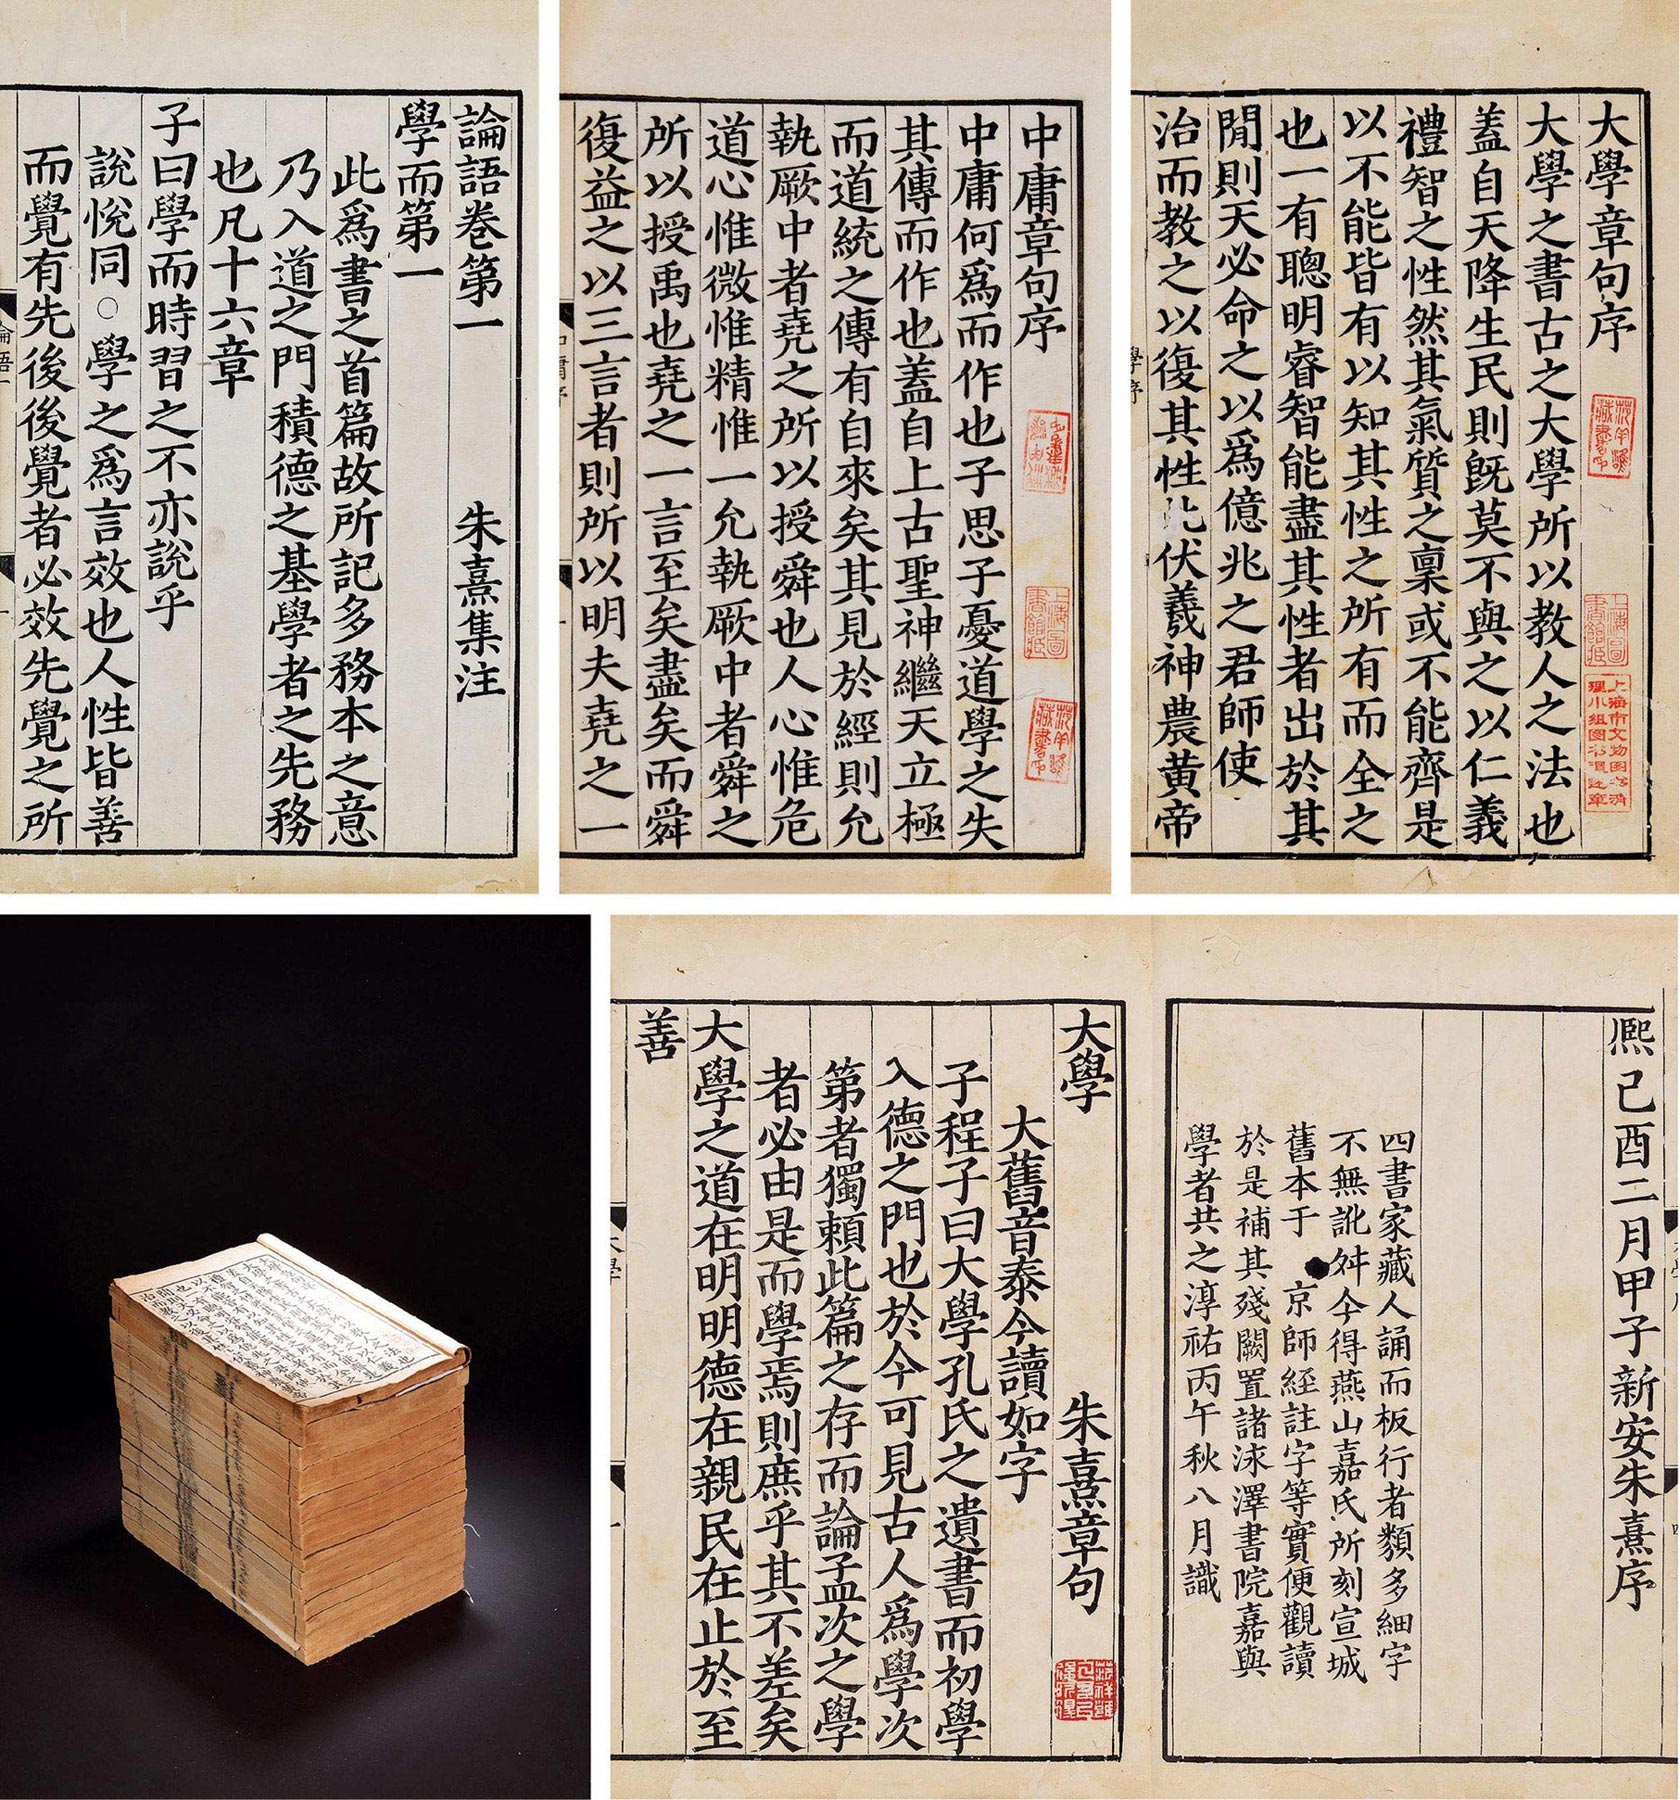 大學章句序
大學之書古之大學所以教人之法也
蓋自天降生民則旣莫不與之以仁義
禮智之性然其氣質之稟或不能齊是
以不能皆有以知其性之所有而全之
也一有聰明睿智能盡其性者出於其
閒則天必命之以爲億兆之君師使
治而教之以復其性此伏羲神農黄帝
上海圖書館藏
中庸章句序
中庸何爲而作也子思子憂道學之失
其傳而作也蓋自上古聖神繼天立極
而道統之傳有自來矣其見於經則允
執厥中者堯之所以授舜也人心惟危
道心惟微惟精惟一允執厥中者舜之
所以授禹也堯之一言至矣盡矣而舜
復益之以三言者則所以明夫堯之一
上海圖書館藏
論語卷第一 朱熹集注
學而第一
此爲書之首篇故所記多務本之意
乃入道之門積德之基學者之先務
也凡十六章
子曰學而時習之不亦說乎
說悅同○學之爲言效也人性皆善
而覺有先後後覺者必效先覺之所
熈己酉二月甲子新安朱熹序
四書家藏人誦而板行者類多細字
不無訛舛今得燕山嘉氏所刻宣城
舊本于 京師經註字等實便觀讀
於是補其殘闕置諸泳澤書院嘉與
學者共之淳祐丙午秋八月識
大學 朱熹章句
大舊音泰今讀如字
子程子曰大學孔氏之遺書而初學
入德之門也於今可見古人爲學次
第者獨頼此篇之存而論孟次之學
者必由是而學焉則庶乎其不差矣
大學之道在明明德在親民在止於至
善